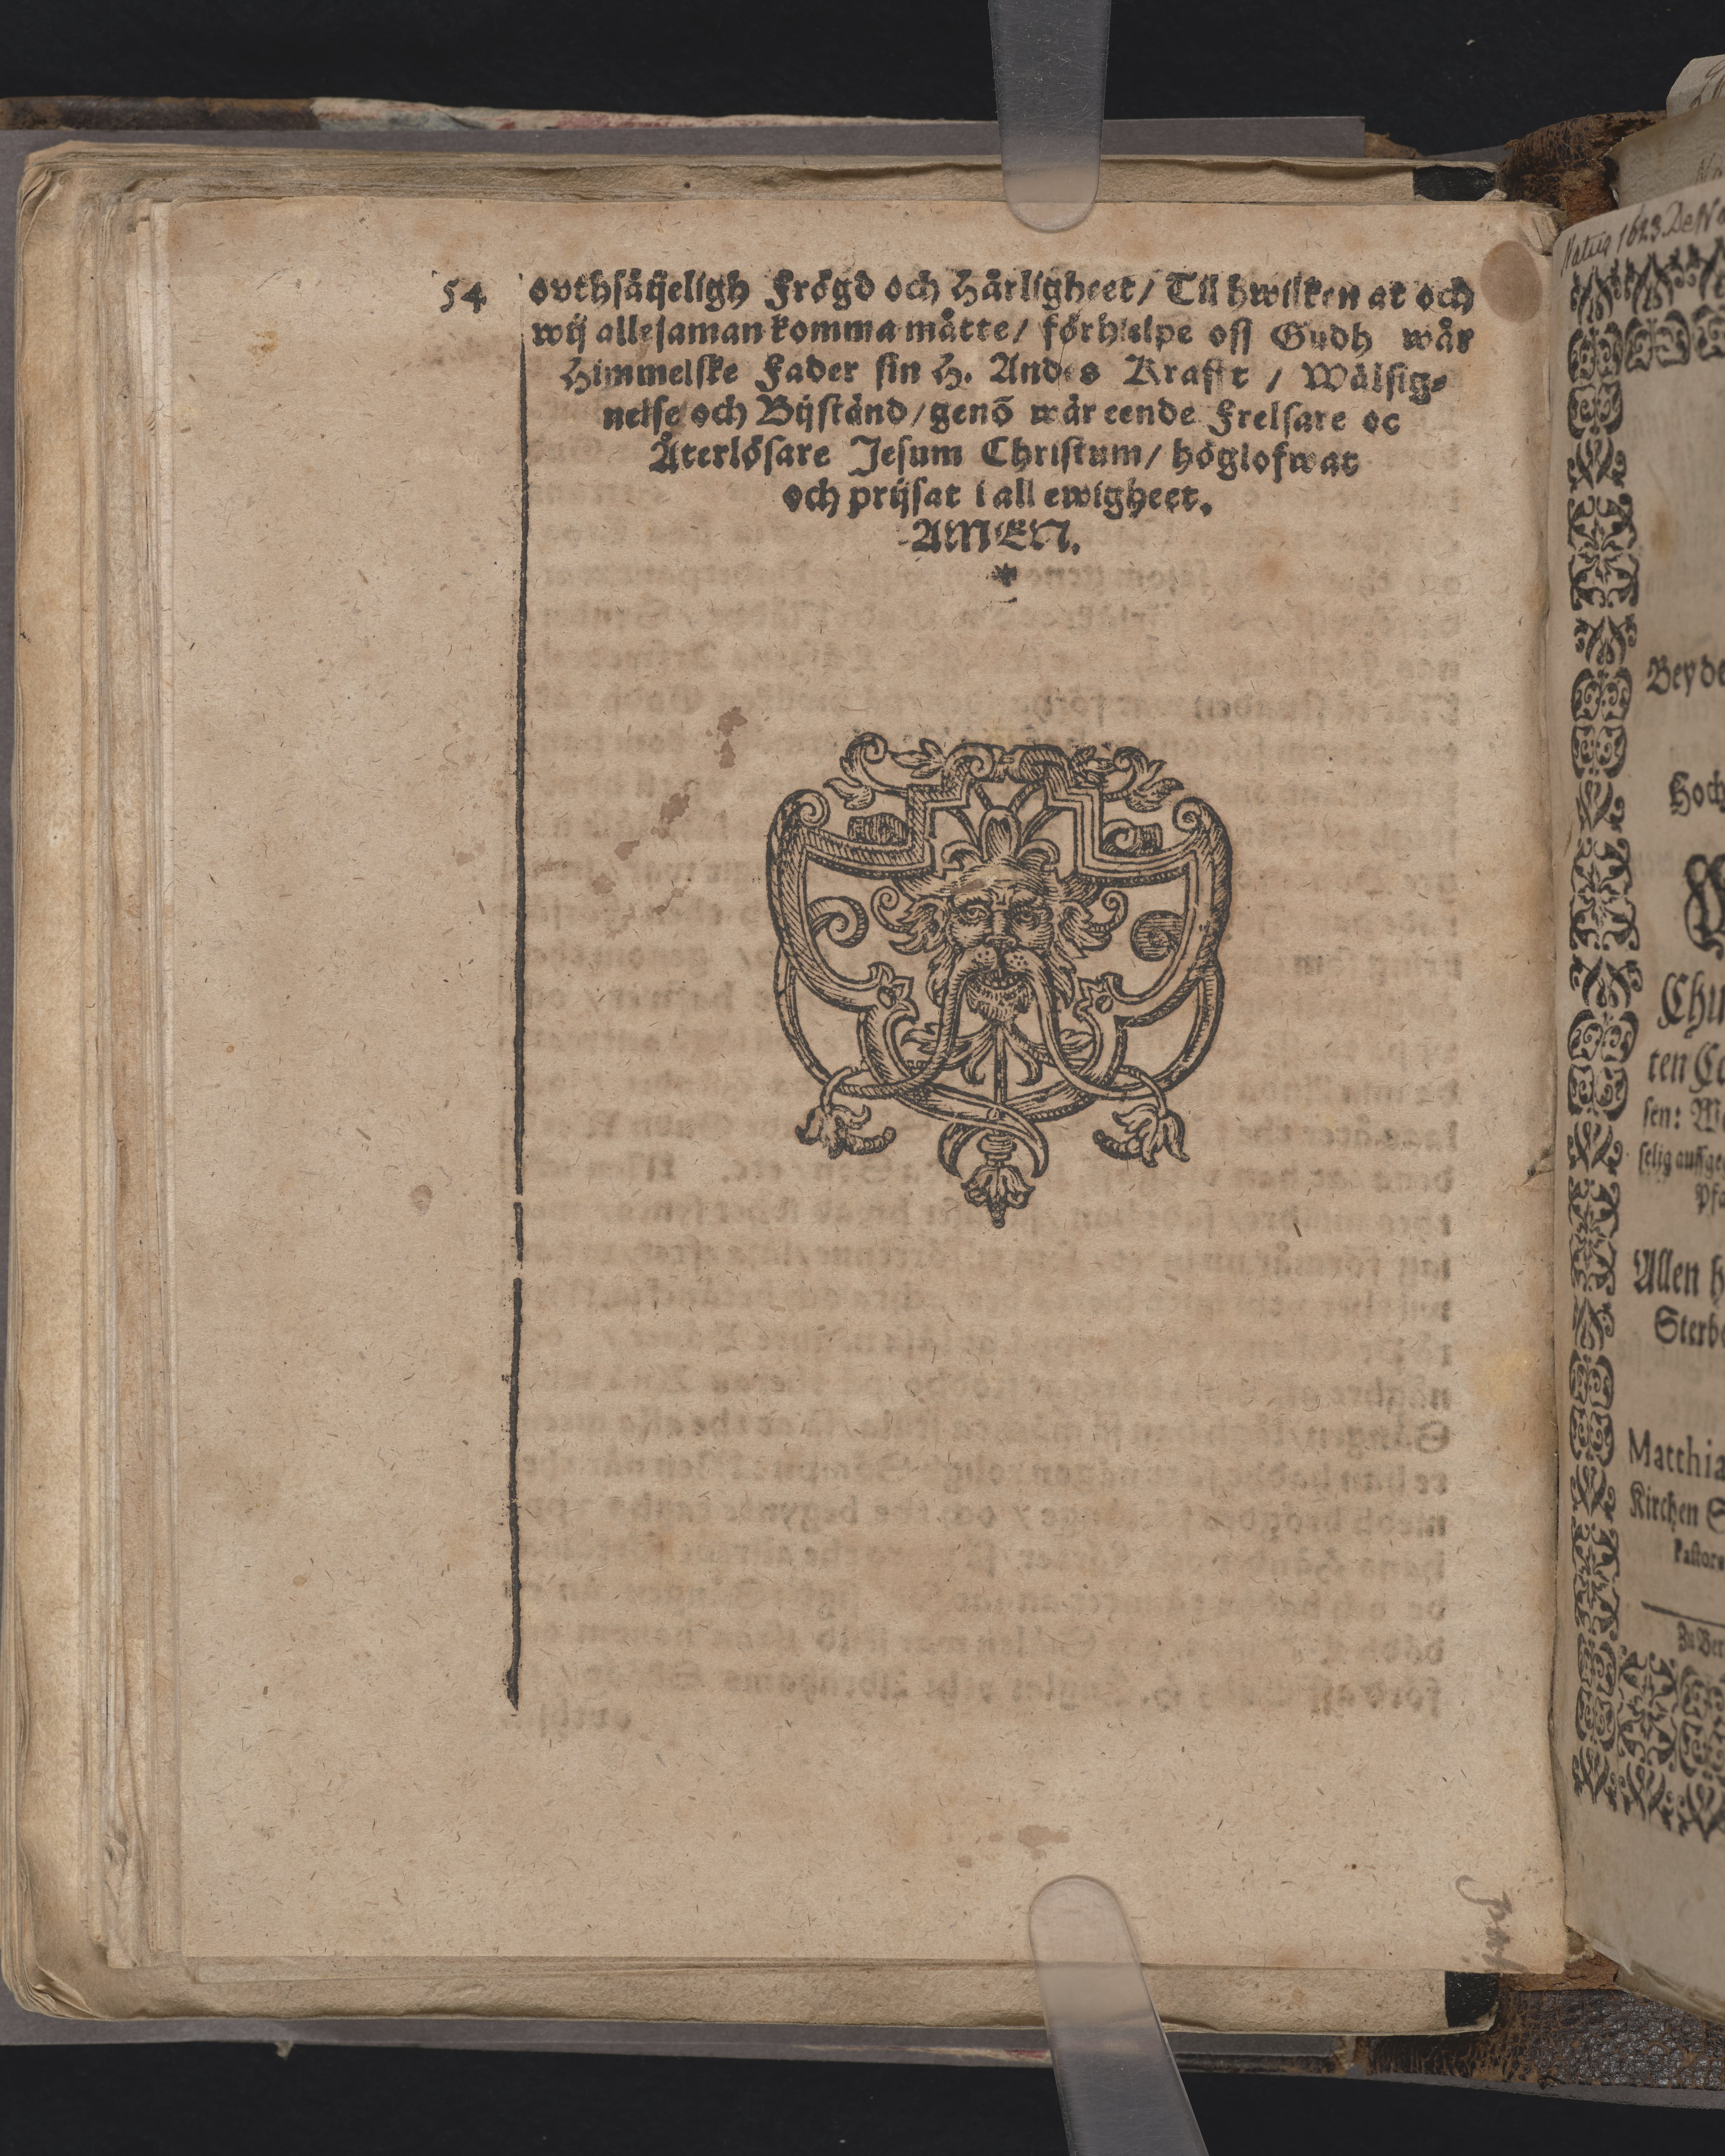 54
ovthsätjeligh Frögd och Härligheet/ Til hwilken at och
wij allesaman komma måtte/ förhielpe oss Gudh wår
Himmelske Fader sin H. Andes Krafft / Wälsig⸗
nelse och Bijstånd/ genō wår eende Frelsare oc
Återlösare Jesum Christum/ höglofwat
och prijsat i all ewigheet.
AMEN.
*
Natus 1623. De
Bey de
Hoch
ten
sen:
selig auffge
Allen h
Sterb
Matthia
Kirchen S
Pastor
Zu Ber